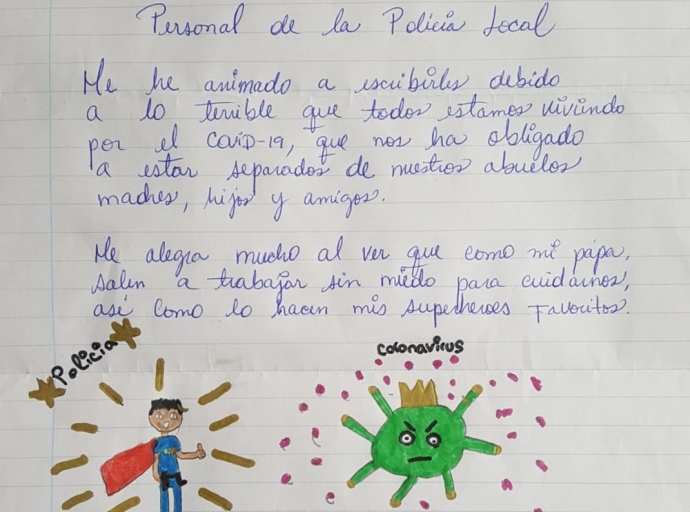 Personal de la Policía Local
Me he animado a escribirles debido
a lo terrible que todos estamos viviendo
por el COVID-19, que nos ha obligado
a estar separados de nuestros abuelos
madres, hijos y amigos.
Me alegra mucho al ver que como mi papa,
salen a trabajar sin miedo para cuidarnos,
así como lo hacen mis superheroes Favoritos.
Policia
Coronavirus